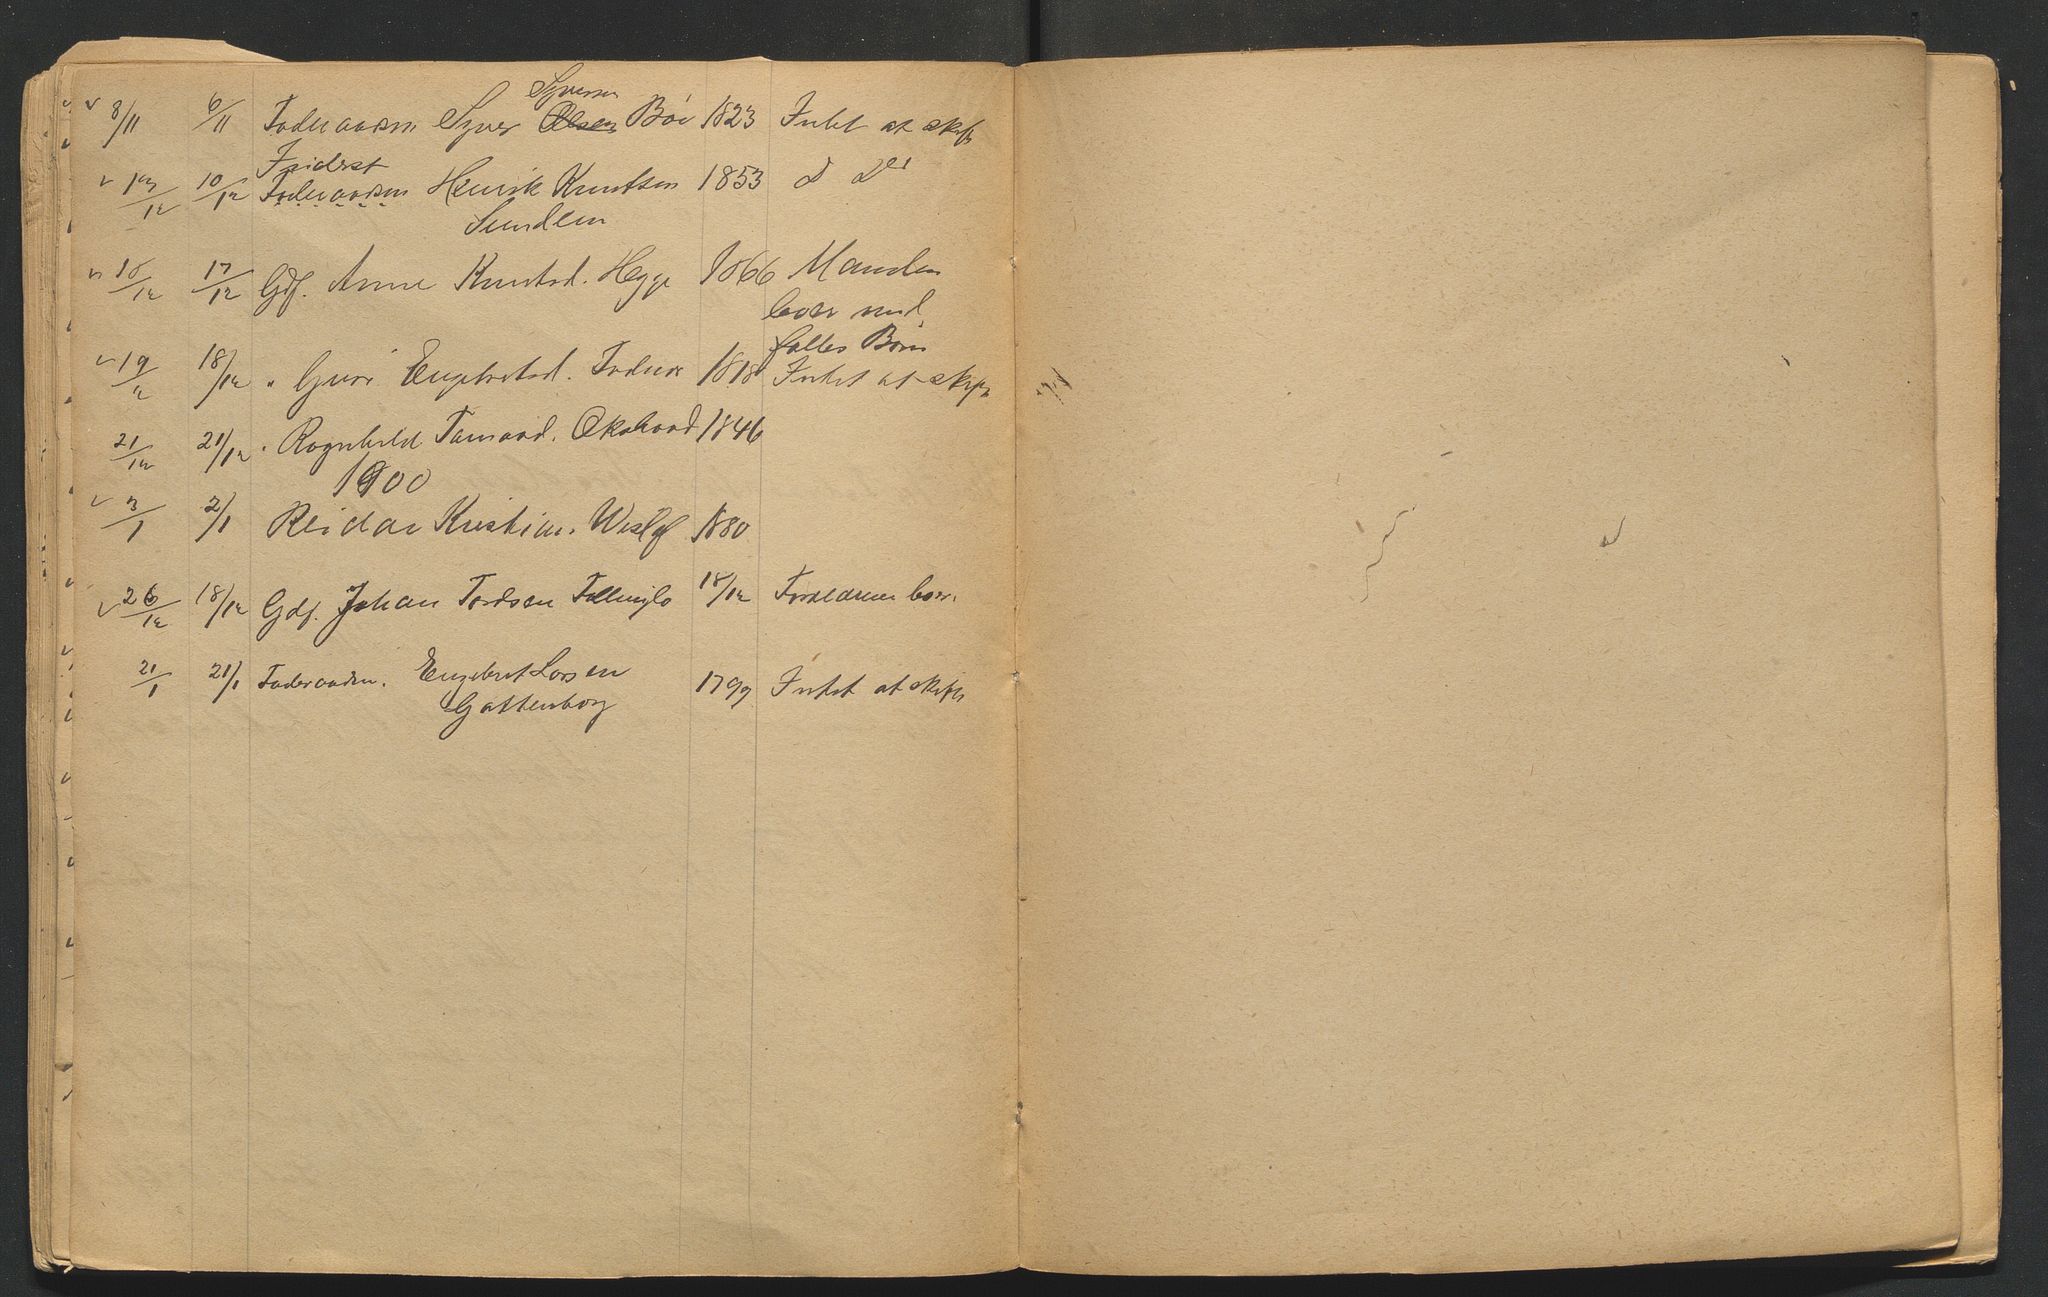 8/11 6/11 Foderaadsm Syver Olsen Syversen Bøe 1823 Intet at skifte
Inderst
13/12 10/12 Foderaadsm Henrik Knutsen 1853 d do
Sundem
18/12 17/12 Gdf. Anne Knutsd. Hegge 1866 Manden
lever med
fælles Børn
19/12 18/12 " Guri Engebretsd. 1818 Intet at skifte
21/12 21/12 " Ragnhild 1846
1900
3/1 2/1 Reidar Kristian. 1880
26/12 18/12 Gdf. Johan Tordsen 18/12 Forældrene lever.
21/1 21/1 Foderaadsm. Engebret Larsen
Gattenborg 1799 Intet at skifte